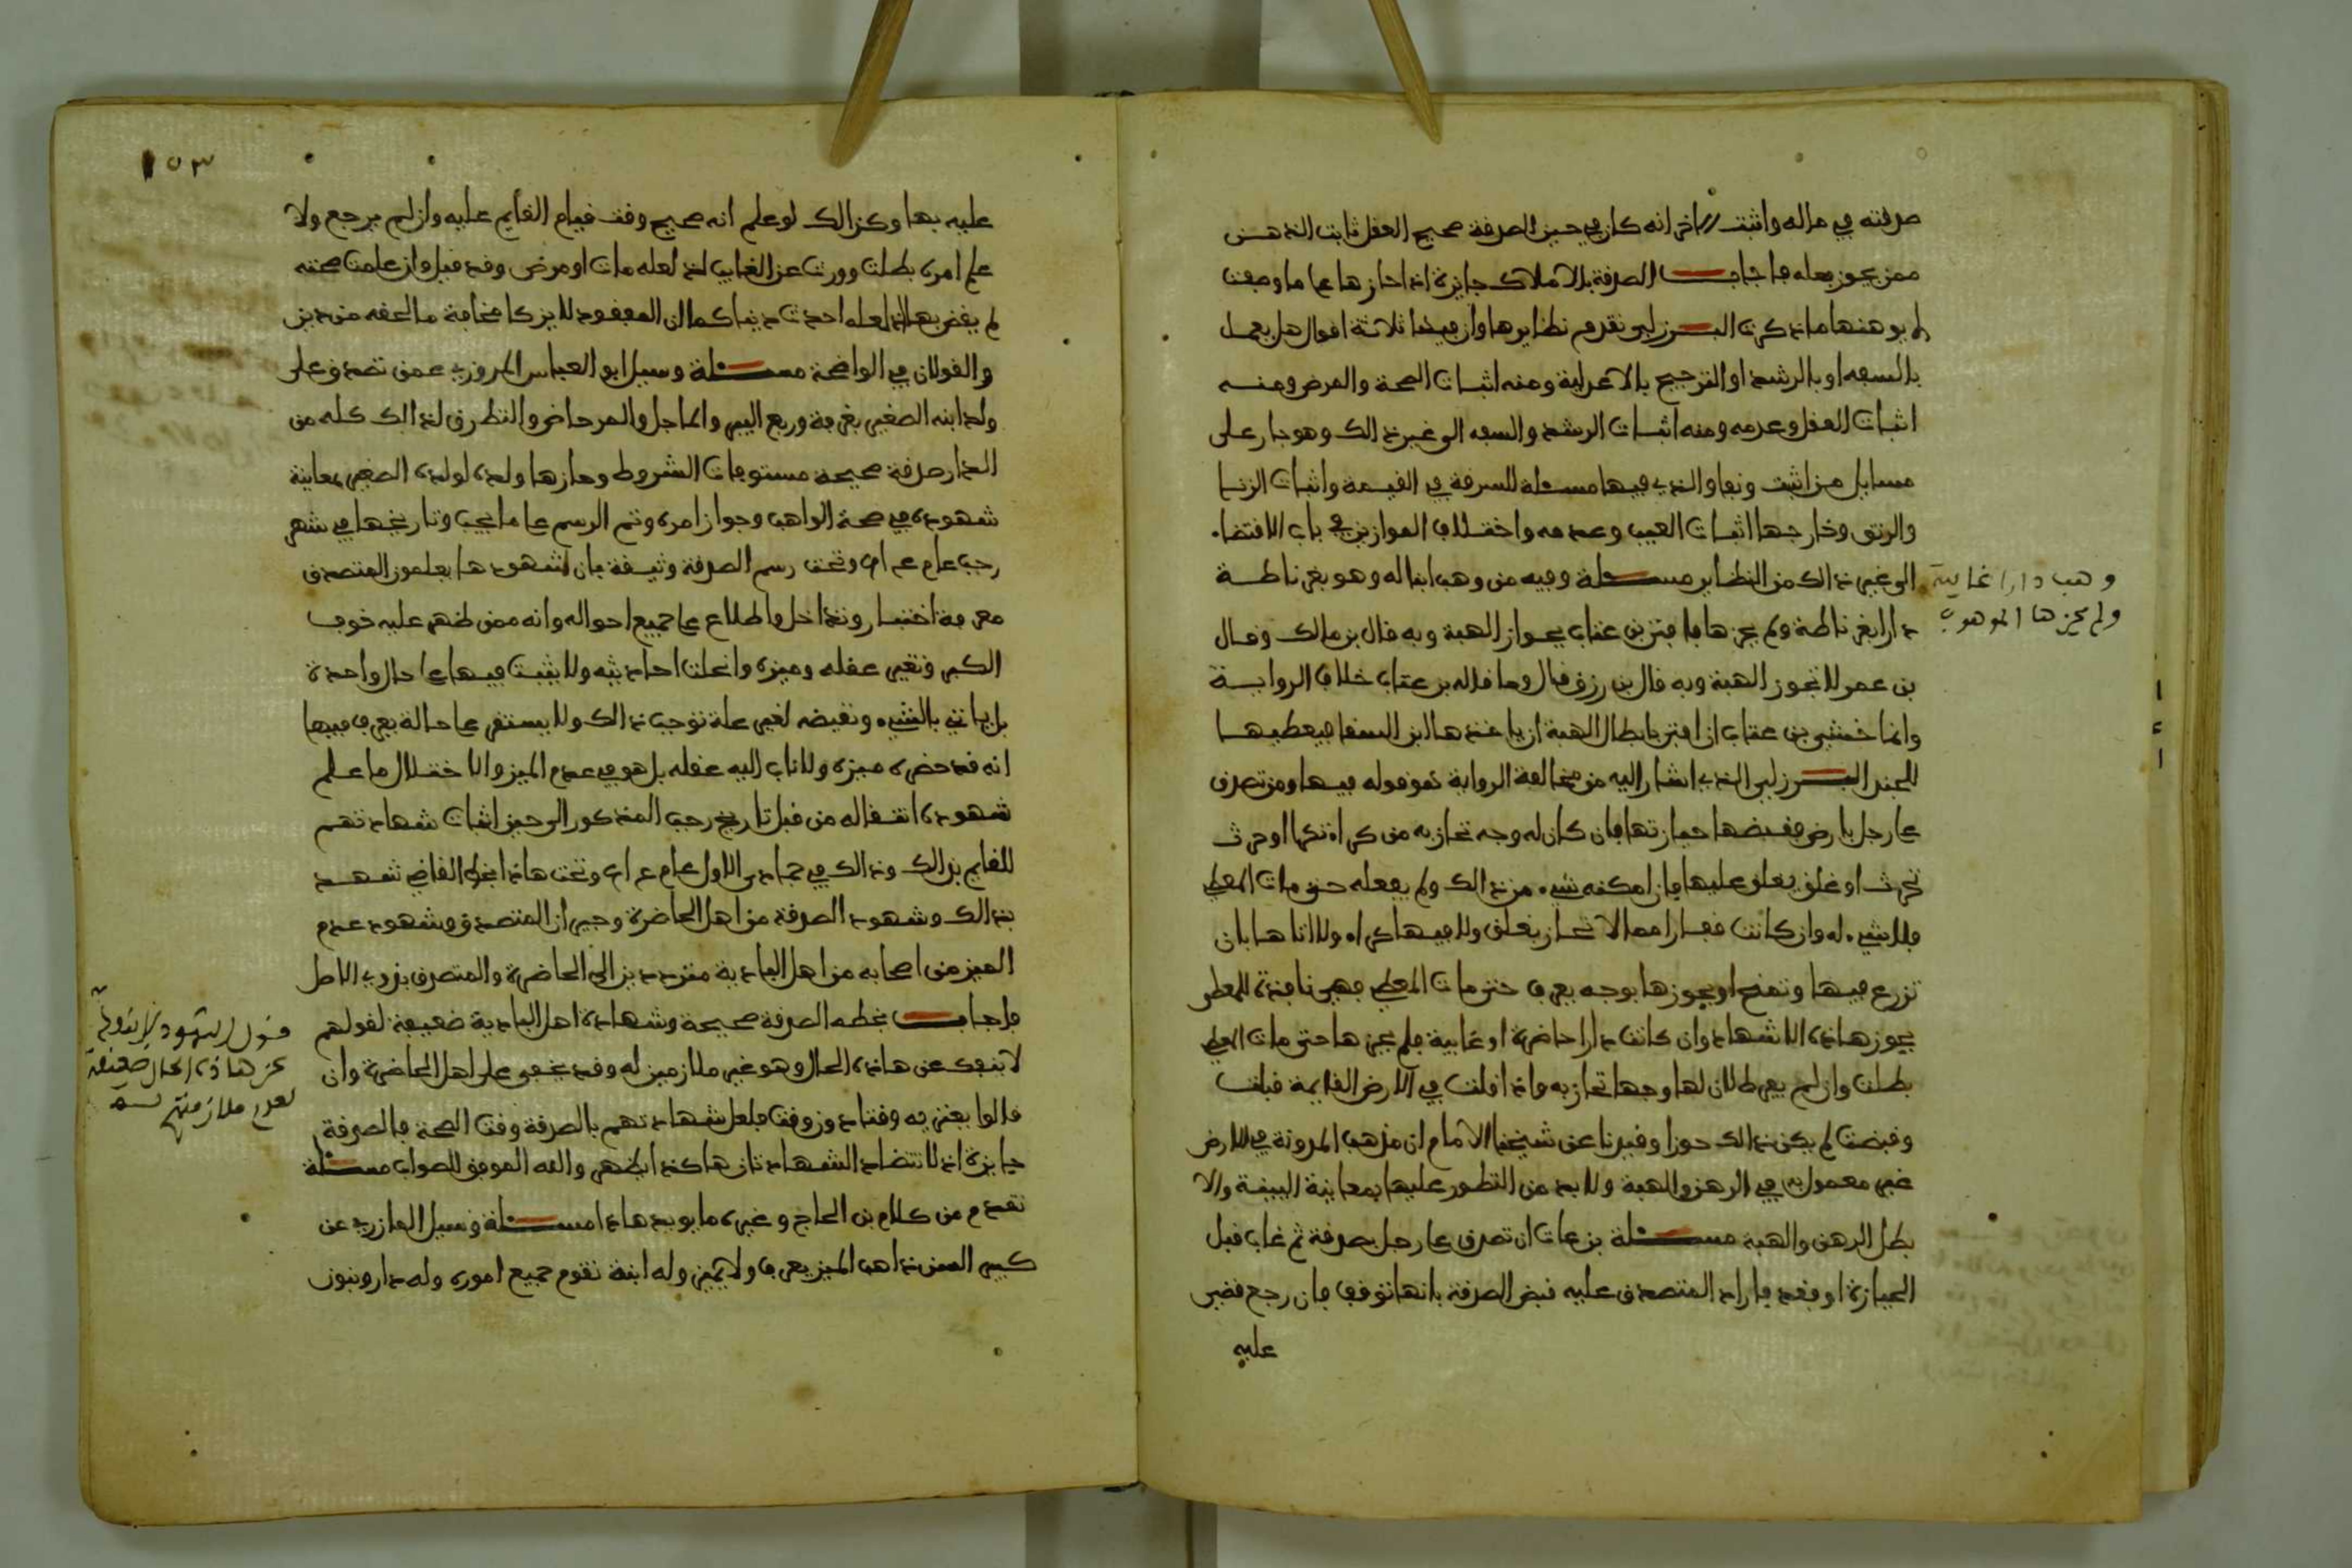 صدقته في ماله واثبت الاخر انه كان في حين الصدقة صحيح العقل ثابت الذهن
ممن يجوز فعله فاجاب الصدقة بالاملاك جايزة اذا حازها على ما وصفت
لا يوهنها ما ذكرت البرزلي تقدم نظايرها وان فيها ثلاثة اقوال هل يعمل
بالسفه او بالرشد او الترجيح بالاعدلية ومنه اثبات الصحة والمرض ومنه
اثبات العقل وعدمه ومنه اثبات الرشد والسفه الى غير ذالك وهو جار على
مسايل من اثبت ونفا والذي فيها مسئلة السرقة في القيمة واثبات الزنا
والرتق وخارجها اثبات العيب وعدمه واختلاف الموازين في باب الاقتضا.
الى غير ذالك من النظاير مسئلة وفيه من وهب ابنا له وهو بغرناطة
دارا بغرناطة ولم يحزها فافتى بن عتاب بجواز الهبة وبه قال بن مالك وقال
بن عمر لا تجوز الهبة وبه قال بن رزق قال وما قاله بن عتاب خلاف الرواية
وانما خشي بن عتاب ان افتى بابطال الهبة ان ياخذها ابن السقا فيعطيها
للجند البرزلي الذي اشار اليه من مخالفة الرواية هو قوله فيها ومن تصدق
على رجل بارض فقبضها حيازتها فان كان له وجه تحاز به من كراء تكرا او حرث
تحرث او غلق يغلق عليها فان امكنه شيء من ذالك ولم يفعله حتى مات المعطي
فلا شيء له وان كانت قفارا مما لا تحاز بغلق ولا فيها كراء ولا اتا ها بان
تزرع فيها وتمنح او يحوزها بوجه يعرف حتى مات المعطي فهي نافذة للمعطى
يحوز هاذه الاشهاد وان كانت دارا حاضرة او غايبة فلم يحزها حتى مات المعطي
بطلت وان لم يفرط لان لها وجها تحاز به واذا قلت في الارض الغايبة قبلت
وقبضت لم يكن ذالك حوزا وقيدنا عن شيخنا الامام ان مذهب المدونة في الارض
غير معمول به في الرهن والهبة ولا بد من التطور عليها بمعاينة البينة والا
بطل الرهن والهبة مسئلة بن عات ان تصدق على رجل بصدقة ثم غاب قبل
الحيازة او فقد فاراد المتصدق عليه قبض الصدقة بانها توقف فان رجع قضي
عليه
وهب دارا غايبة
ولم يحزها الموهوب
١٥٣
عليه بها وكذالك لو علم انه صحيح وقت قيام القايم عليه وان لم يرجع ولا
علم امره بطلت وورث عن الغايب اذ لعله مات او مرض وقد قيل وان علمت صحته
لم يقض بها اذ لعله احدث دينا كما ان المفقود لا يزكا مخافة ما لحقه من دين
والقولان في الواضحة مسئلة وسيل ابو العباس المروزي عمن تصدق على
ولد ابنه الصغير بغرفة وربع البير والماجل والمرحاض والتطرق لذالك كله من
الدار صدقة صحيحة مستوفات الشروط وحازها ولده لولده الصغير بمعاينة
شهوده في صحة الواهب وجواز امره وتم الرسم على ما يجب وتاريخها في شهر
رجب عام وتحت رسم الصدقة وثيقة بان شهودها يعلمون المتصدق
معرفة اختبار وتداخل واطلاع على جميع احواله وانه ممن ظهر عليه خوف
الكبر وتغير عقله وميزه وانحلت احاديثه ولا يثبت فيها على حال واحدة
بل ياتي بالشيء ونقيضه لغير علة توجب ذالك ولا يستقر على حالة يعرف فيها
انه قد حضره ميزه ولا ثاب اليه عقله بل هو في عدم الميز والاختلال ما علم
شهوده انتقاله من قبل تاريخ رجب المذكور الى حين اثبات شهادتهم
للقايم بذالك وذالك في جمادى الاول عام وتحت هاذا بخط القاضي شهد
بذالك وشهود الصدقة من اهل الحاضرة وجيران المتصدق وشهود عدم
الميز من اصحابه من اهل البادية مترددين الى الحاضرة والمتصدق بدوي الاصل
فاجاب بخطه الصدقة صحيحة وشهادة اهل البادية ضعيفة لقولهم
لا ينفك عن هاذه الحال وهو غير ملازمين له وقد يخفى على اهل الحاضرة وان
قالوا يعتريه وقتا دون وقت فلعل شهادتهم بالصدقة وقت الصحة فالصدقة
جايزة اذ لا تتضاد الشهادتان هاكذا يظهر والله الموفق للصواب مسئلة
تقدم من كلام بن الحاج وغيره ما يويد هاذا مسئلة وسيل المازري عن
كبير السن ذاهب الميز يعرف ولا يميز وله ابنة تقوم جميع اموره وله دار وبنون
قول الشهود
عن هاذه الحال ضعيفة
لعدم ملازمتهم له